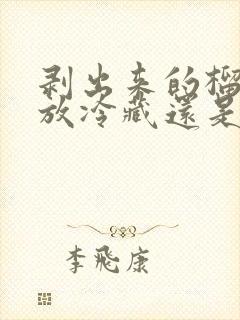 剥出来的榴
放冷藏還是
李飛康